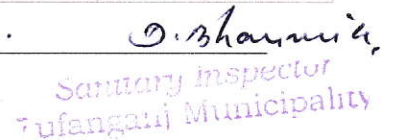 D. Bhaumik,
Sanitary Inspector
Tufanganj Municipality